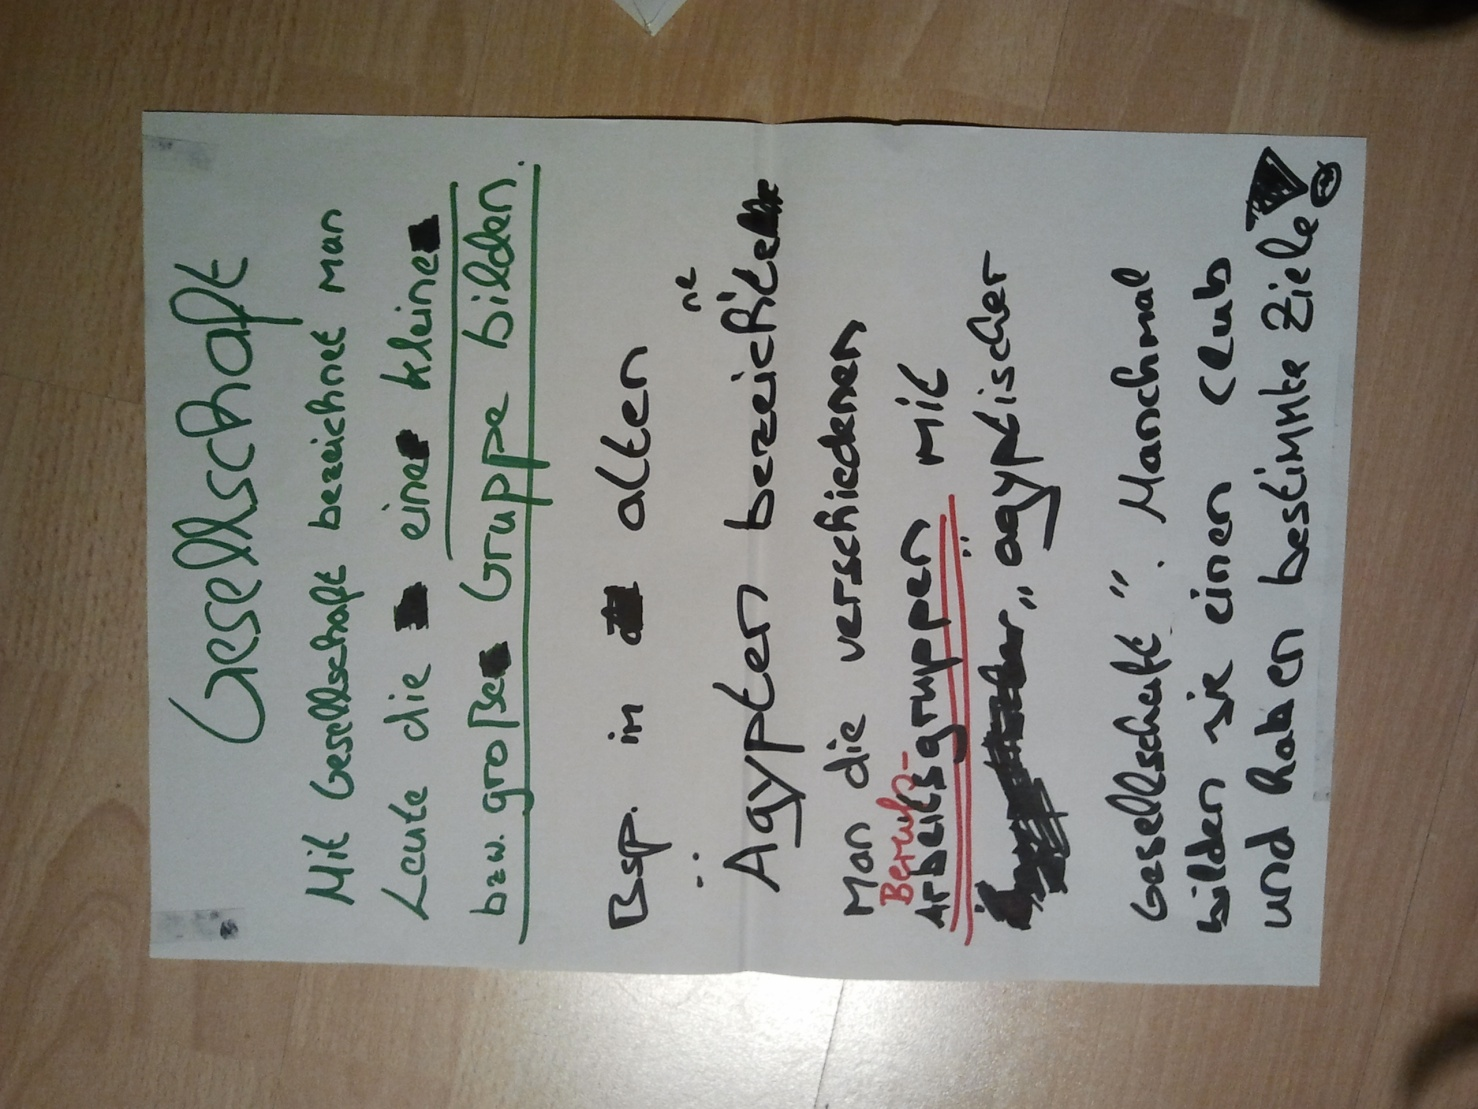 Gesellschaft
Mit Gesellschaft bezeichnet man
Leute die eine kleine
bzw. große Gruppe bilden.
Bsp. in alten
Ägypten bezeichnete
Man die verschiedenen
Berufs-
Arbeitsgruppen mit
„ägyptischer
Gesellschaft". Manchmal
bilden sie einen Club
und haben bestimmte Ziele